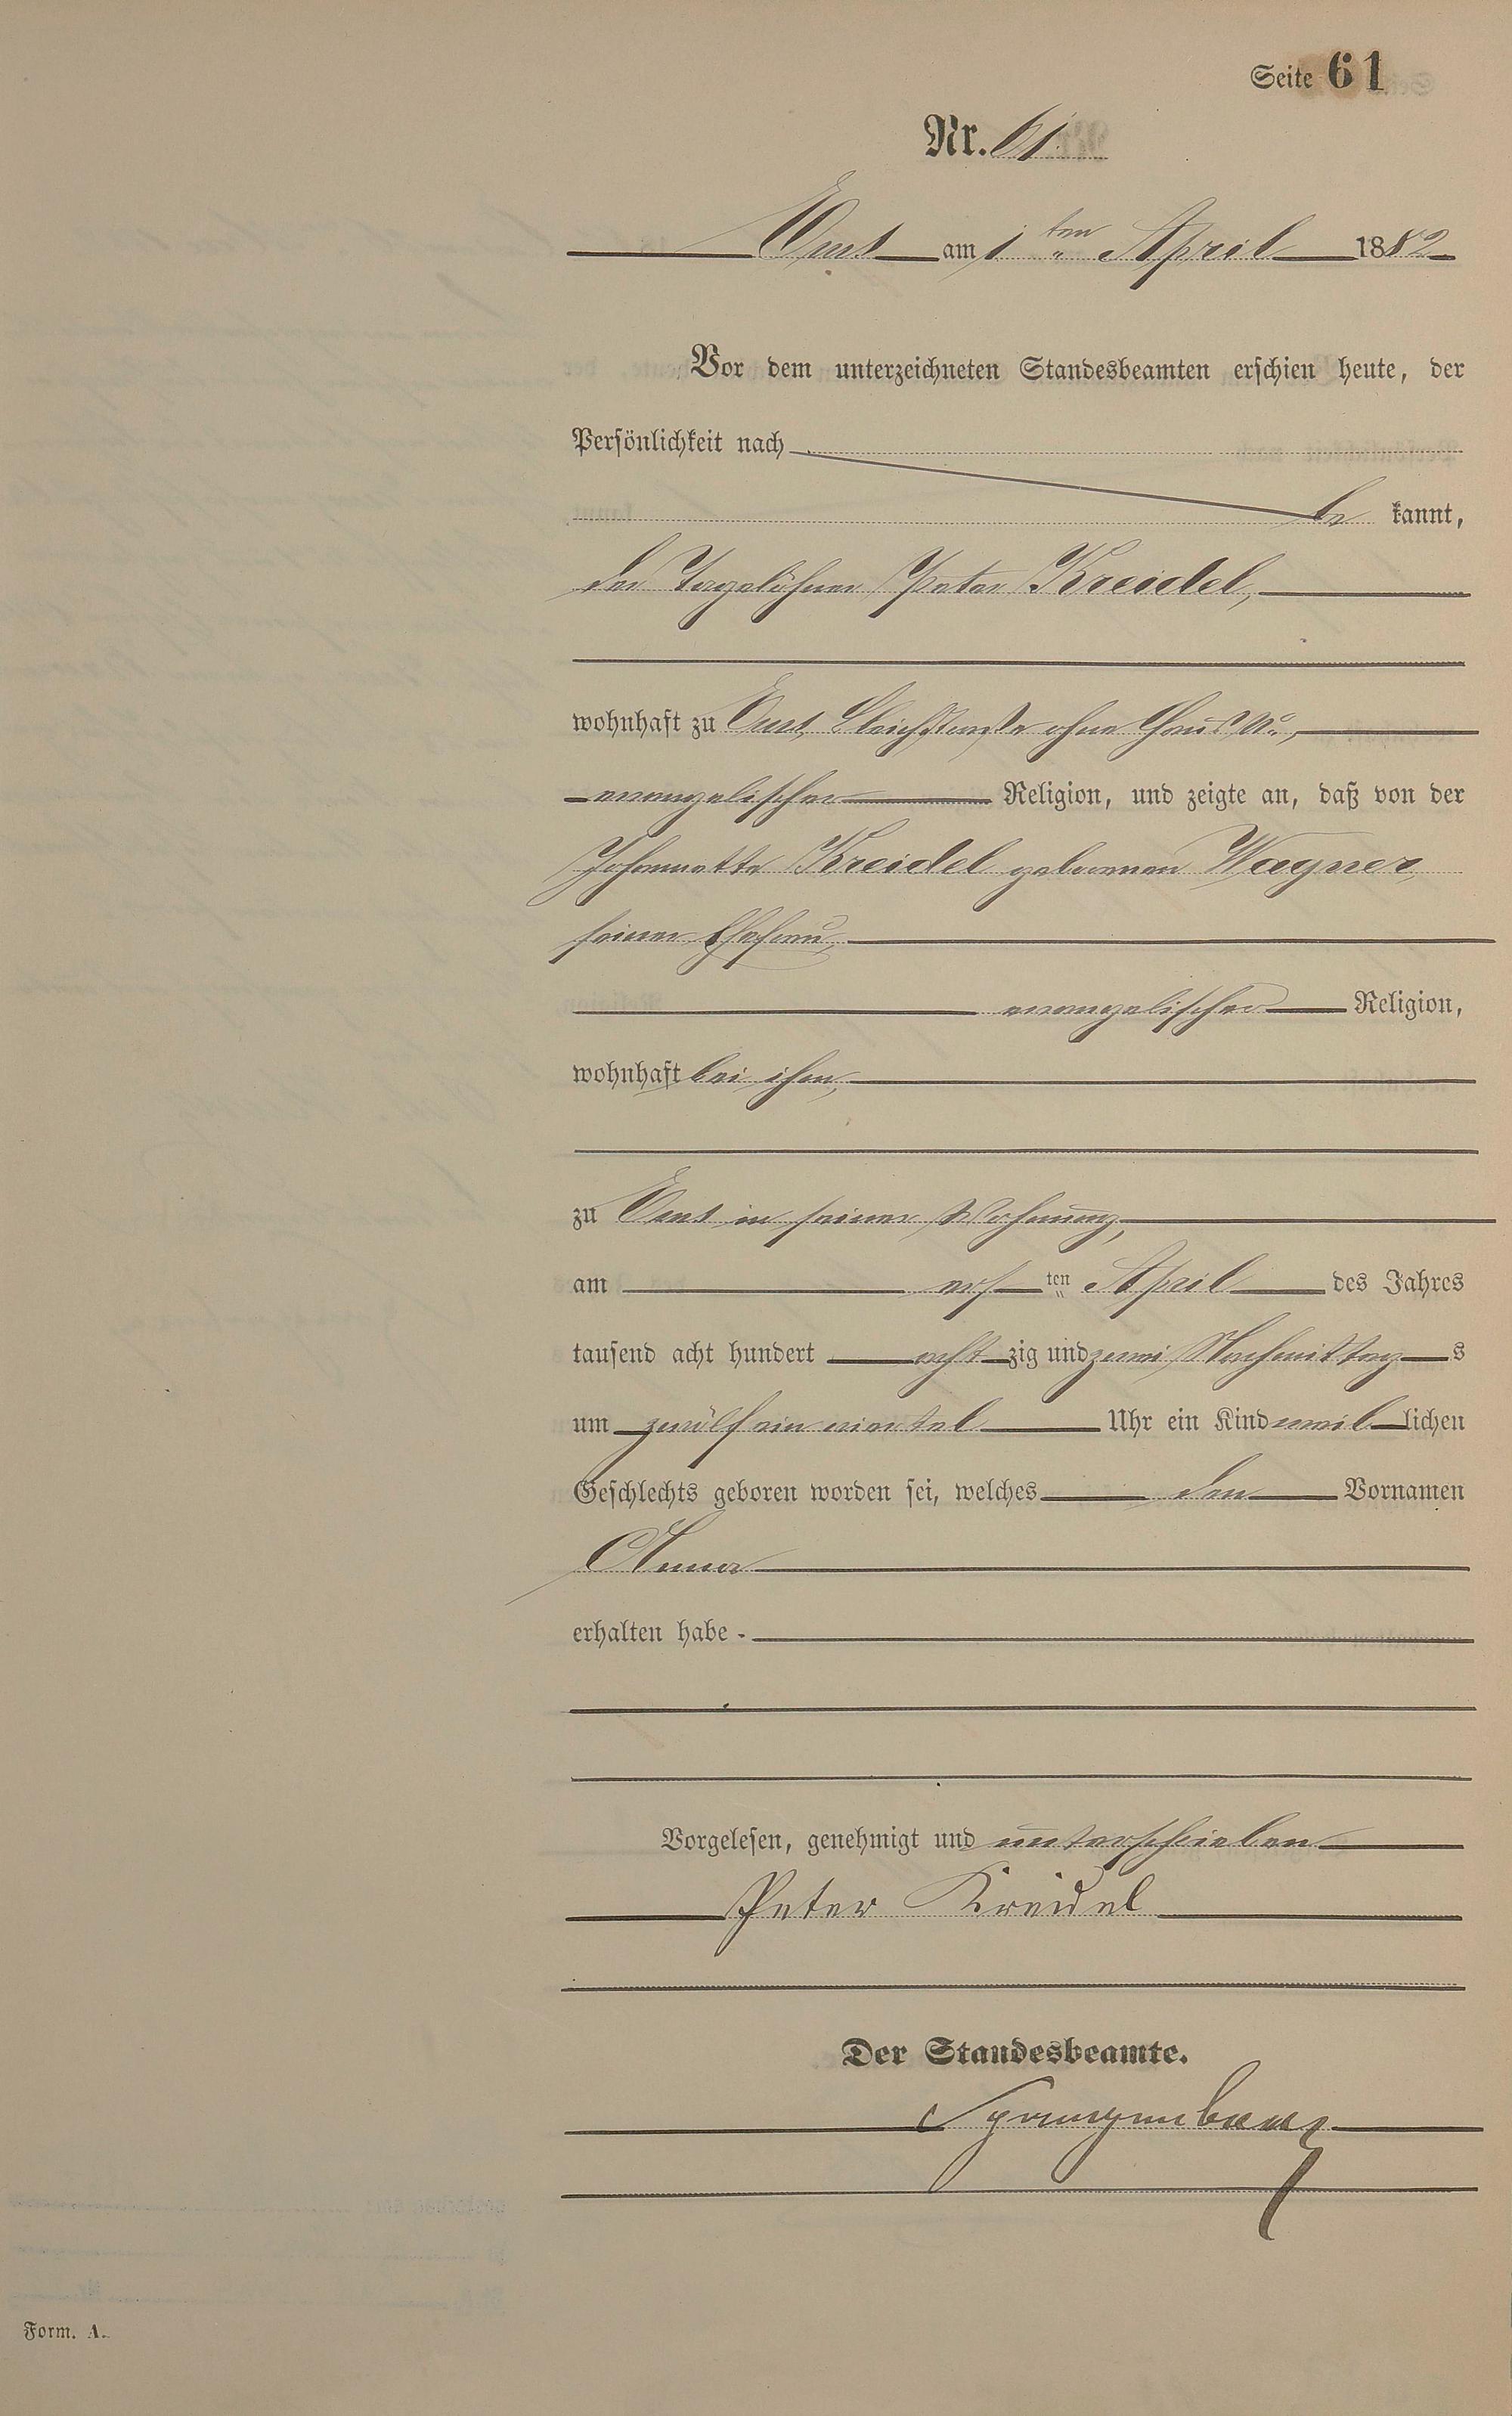 Seite 61
Nr. 61
Ems am 1ten April 1882
Vor dem unterzeichneten Standesbeamten erschien heute, der
Persönlichkeit nach
be kannt,
der Tagelöhner Peter Kreidel,
wohnhaft zu Ems, Bleichstraße ohne Haus No.,
evangelischer Religion, und zeigte an, daß von der
Johannette Kreidel geborenen Wagner,
seiner Ehefrau,
evangelischer Religion,
wohnhaft bei ihm,
zu Ems in seiner Wohnung,
am ers ten April des Jahres
tausend acht hundert acht zig und zwei Nachmittag s
um zwölf ein viertel Uhr ein Kind weib lichen
Geschlechts geboren worden sei, welches den Vornamen
Anna
erhalten habe.
Vorgelesen, genehmigt und unterschrieben
Peter Kreidel
Der Standesbeamte.
Form. A.